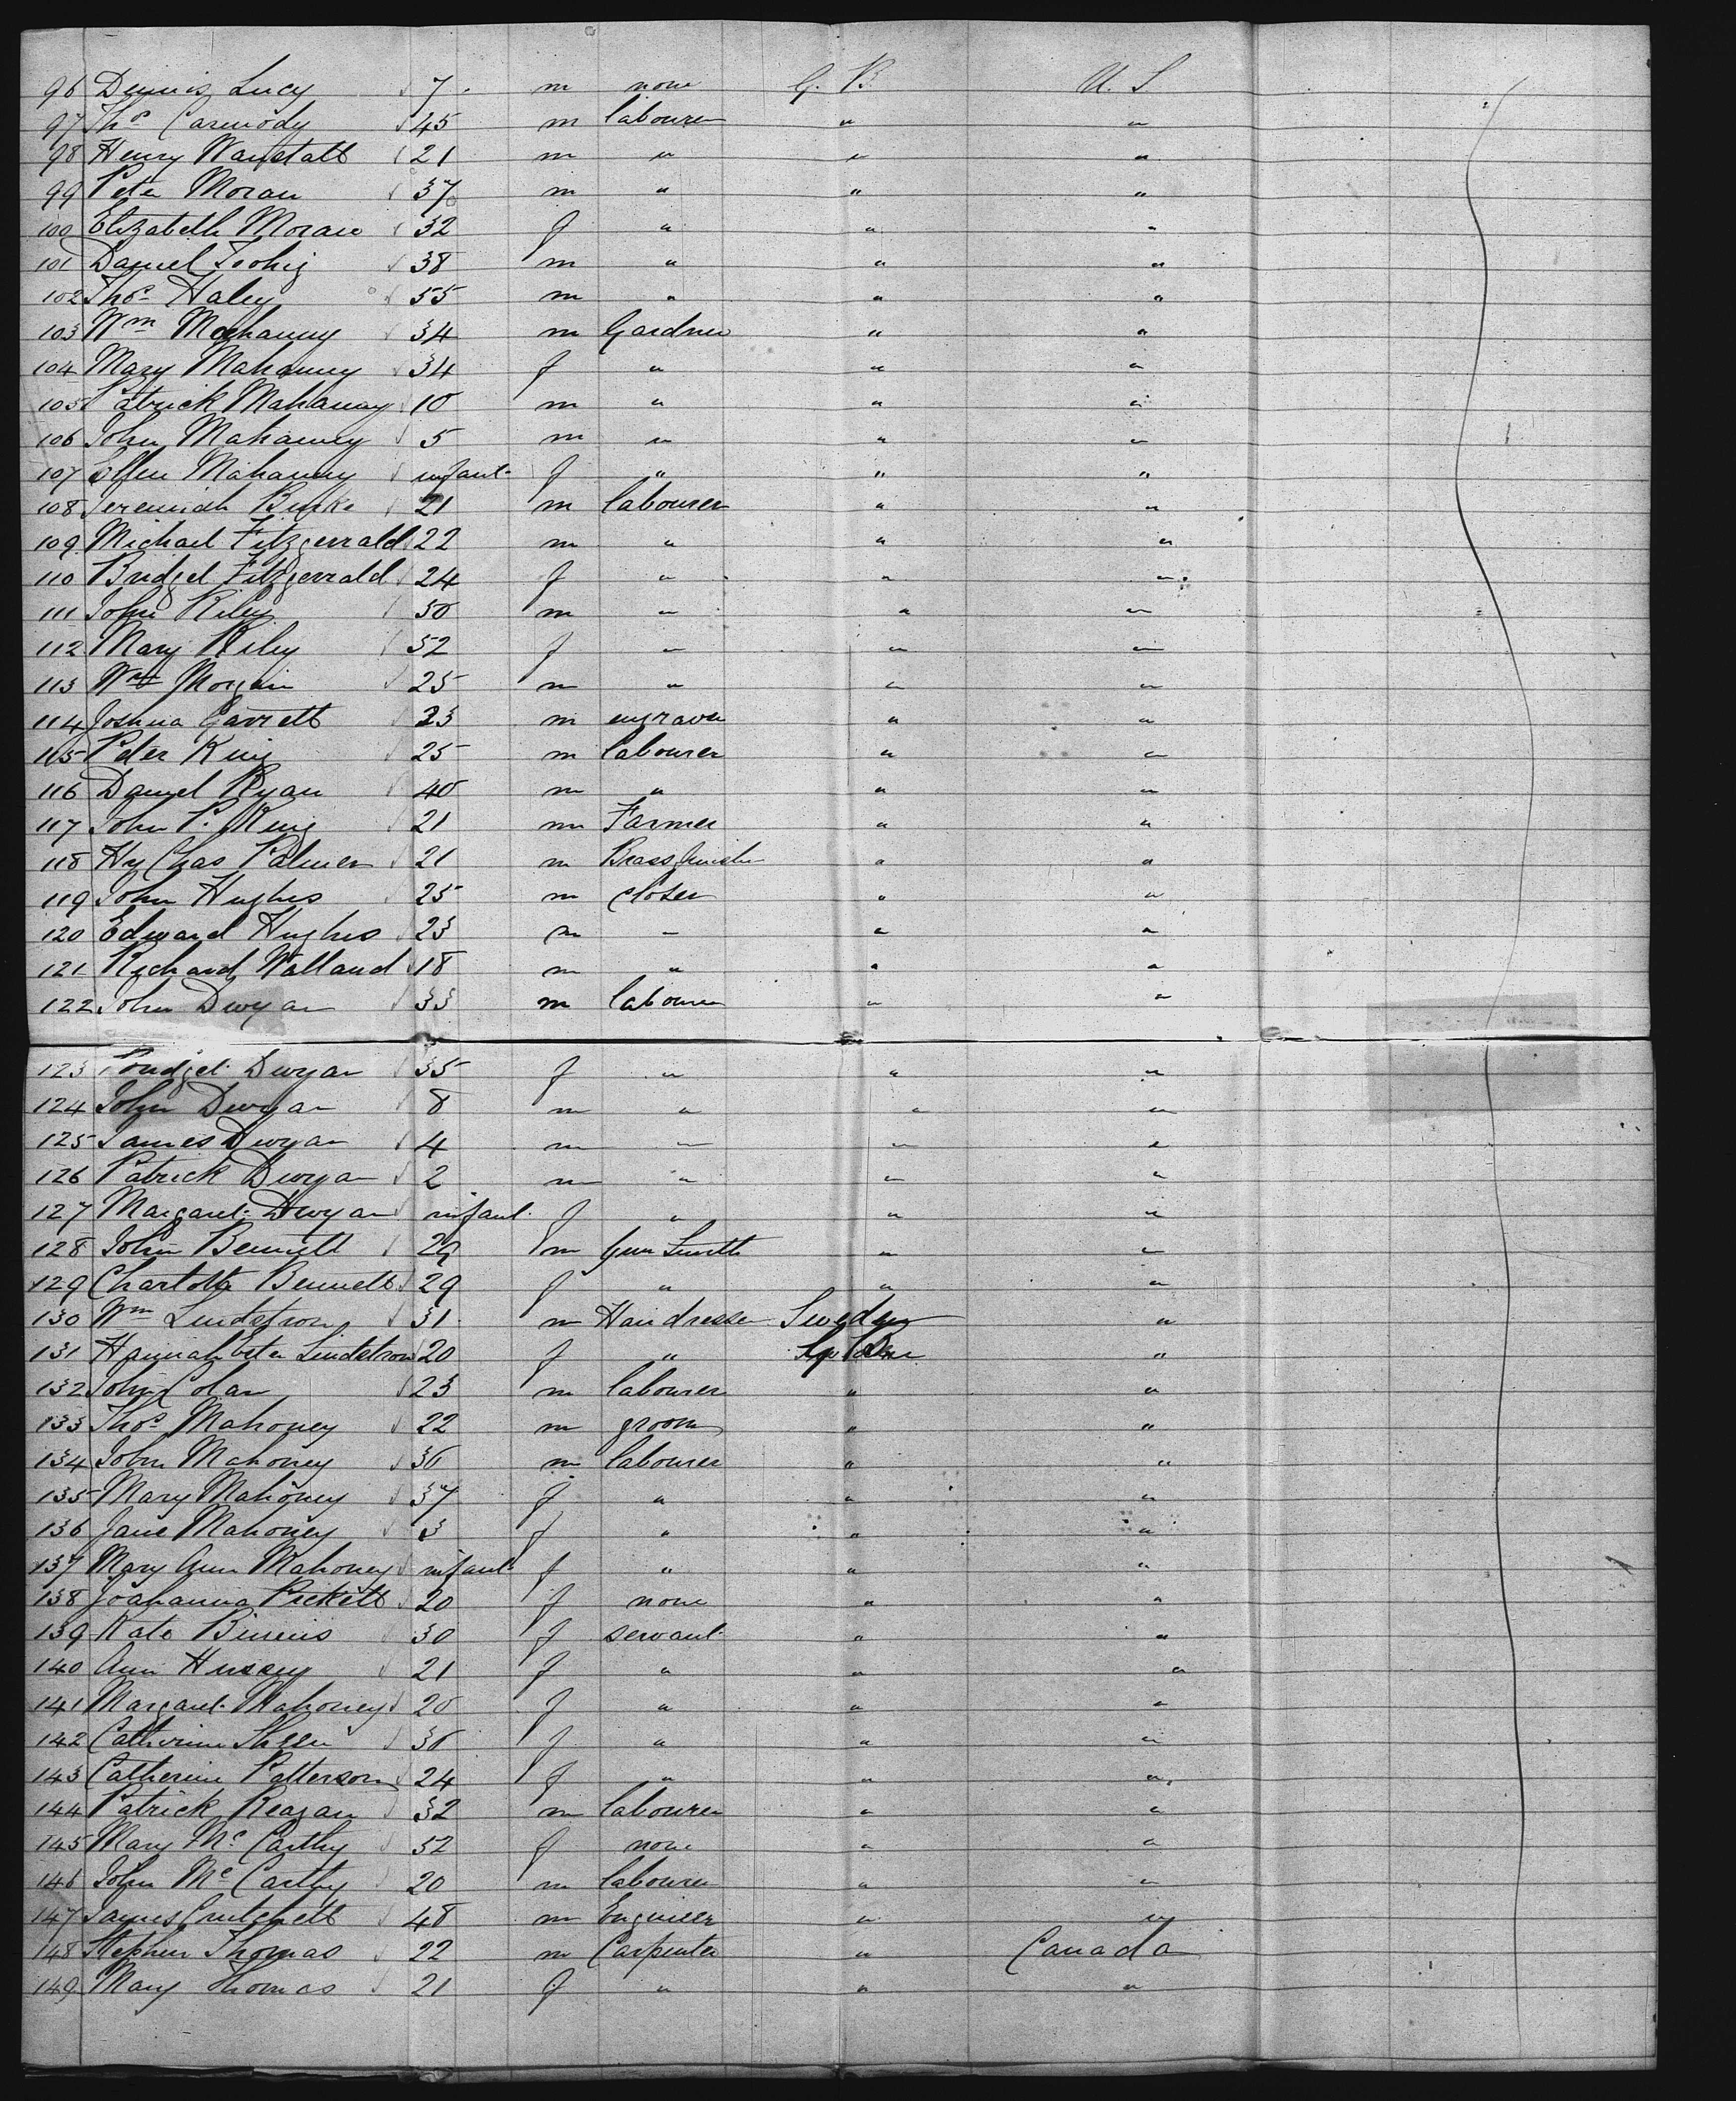 96 Dennis Lucy 7 m none G. B U. S
97 Thos Carmody 45 m labourer " "
98 Henry Wanstall 21 m " " "
99 Peter Moran 37 m " " "
100 Elizabeth Moran 32 f " " "
101 Daniel Toohig 38 m " " "
102 Thos Haley 55 m " " "
103 Wm Mahanny 34 m Gardner " "
104 Mary Mahanny 34 f " " "
105 Patrick Mahanay 10 m " " "
106 John Mahanney 5 m " " "
107 Ellen Mahanny infant f " " "
108 Jeremiah Burke 21 m labourer " "
109 Michael Fitzgerrald 22 m " " "
110 Bridget Fitzgerrald 24 f " " "
111 John Riley 50 m " " "
112 Mary Riley 52 f " " "
113 Wm Morgan 25 m " " "
114 Joshua Garrett 23 m engraver " "
115 Peter King 25 m labourer " "
116 Daniel Ryan 40 m " " "
117 John P. King 21 m Farmer " "
118 Hy Chas Palmer 21 m Brass finisher " "
119 John Hughes 25 m closer " "
120 Edward Hughes 23 m " " "
121 Richard Walland 18 m " " "
122 John Dwyar 33 m labourer " "
123 Bridget Dwyar 35 f " " "
124 John Dwyar 8 m " " "
125 James Dwyar 4 m " " "
126 Patrick Dwyar 2 m " " "
127 Margaret Dwyar infant f " " "
128 John Bennett 29 m Gun Smith " "
129 Charlotte Bennett 29 f " " "
130 Wm Lindstrom 31 m Hairdresser Sweden "
131 Hannah Lindstrom 20 f " "
132 John Colan 23 m labourer " "
133 Thos Mahoney 22 m groom " "
134 John Mahoney 36 m labourer " "
135 Mary Mahoney 37 f " " "
136 Jane Mahoney 3 f " " "
137 Mary Ann Mahoney infant f " " "
138 Joahanna Pickett 20 f none " "
139 Kate Binnis 30 f servant " "
140 Ann Hussey 21 f " " "
141 Margaret Mahoney 20 f " " "
142 Catherine 36 f " " "
143 Catherine Patterson 24 f " " "
144 Patrick Reagan 32 m labourer " "
145 Mary Mc Carthy 52 f none " "
146 John Mc Carthy 20 m labourer " "
147 James Crutchett 48 m Engineer " "
148 Stephen Thomas 22 m Carpenter " Canada
149 Mary Thomas 21 f " " "